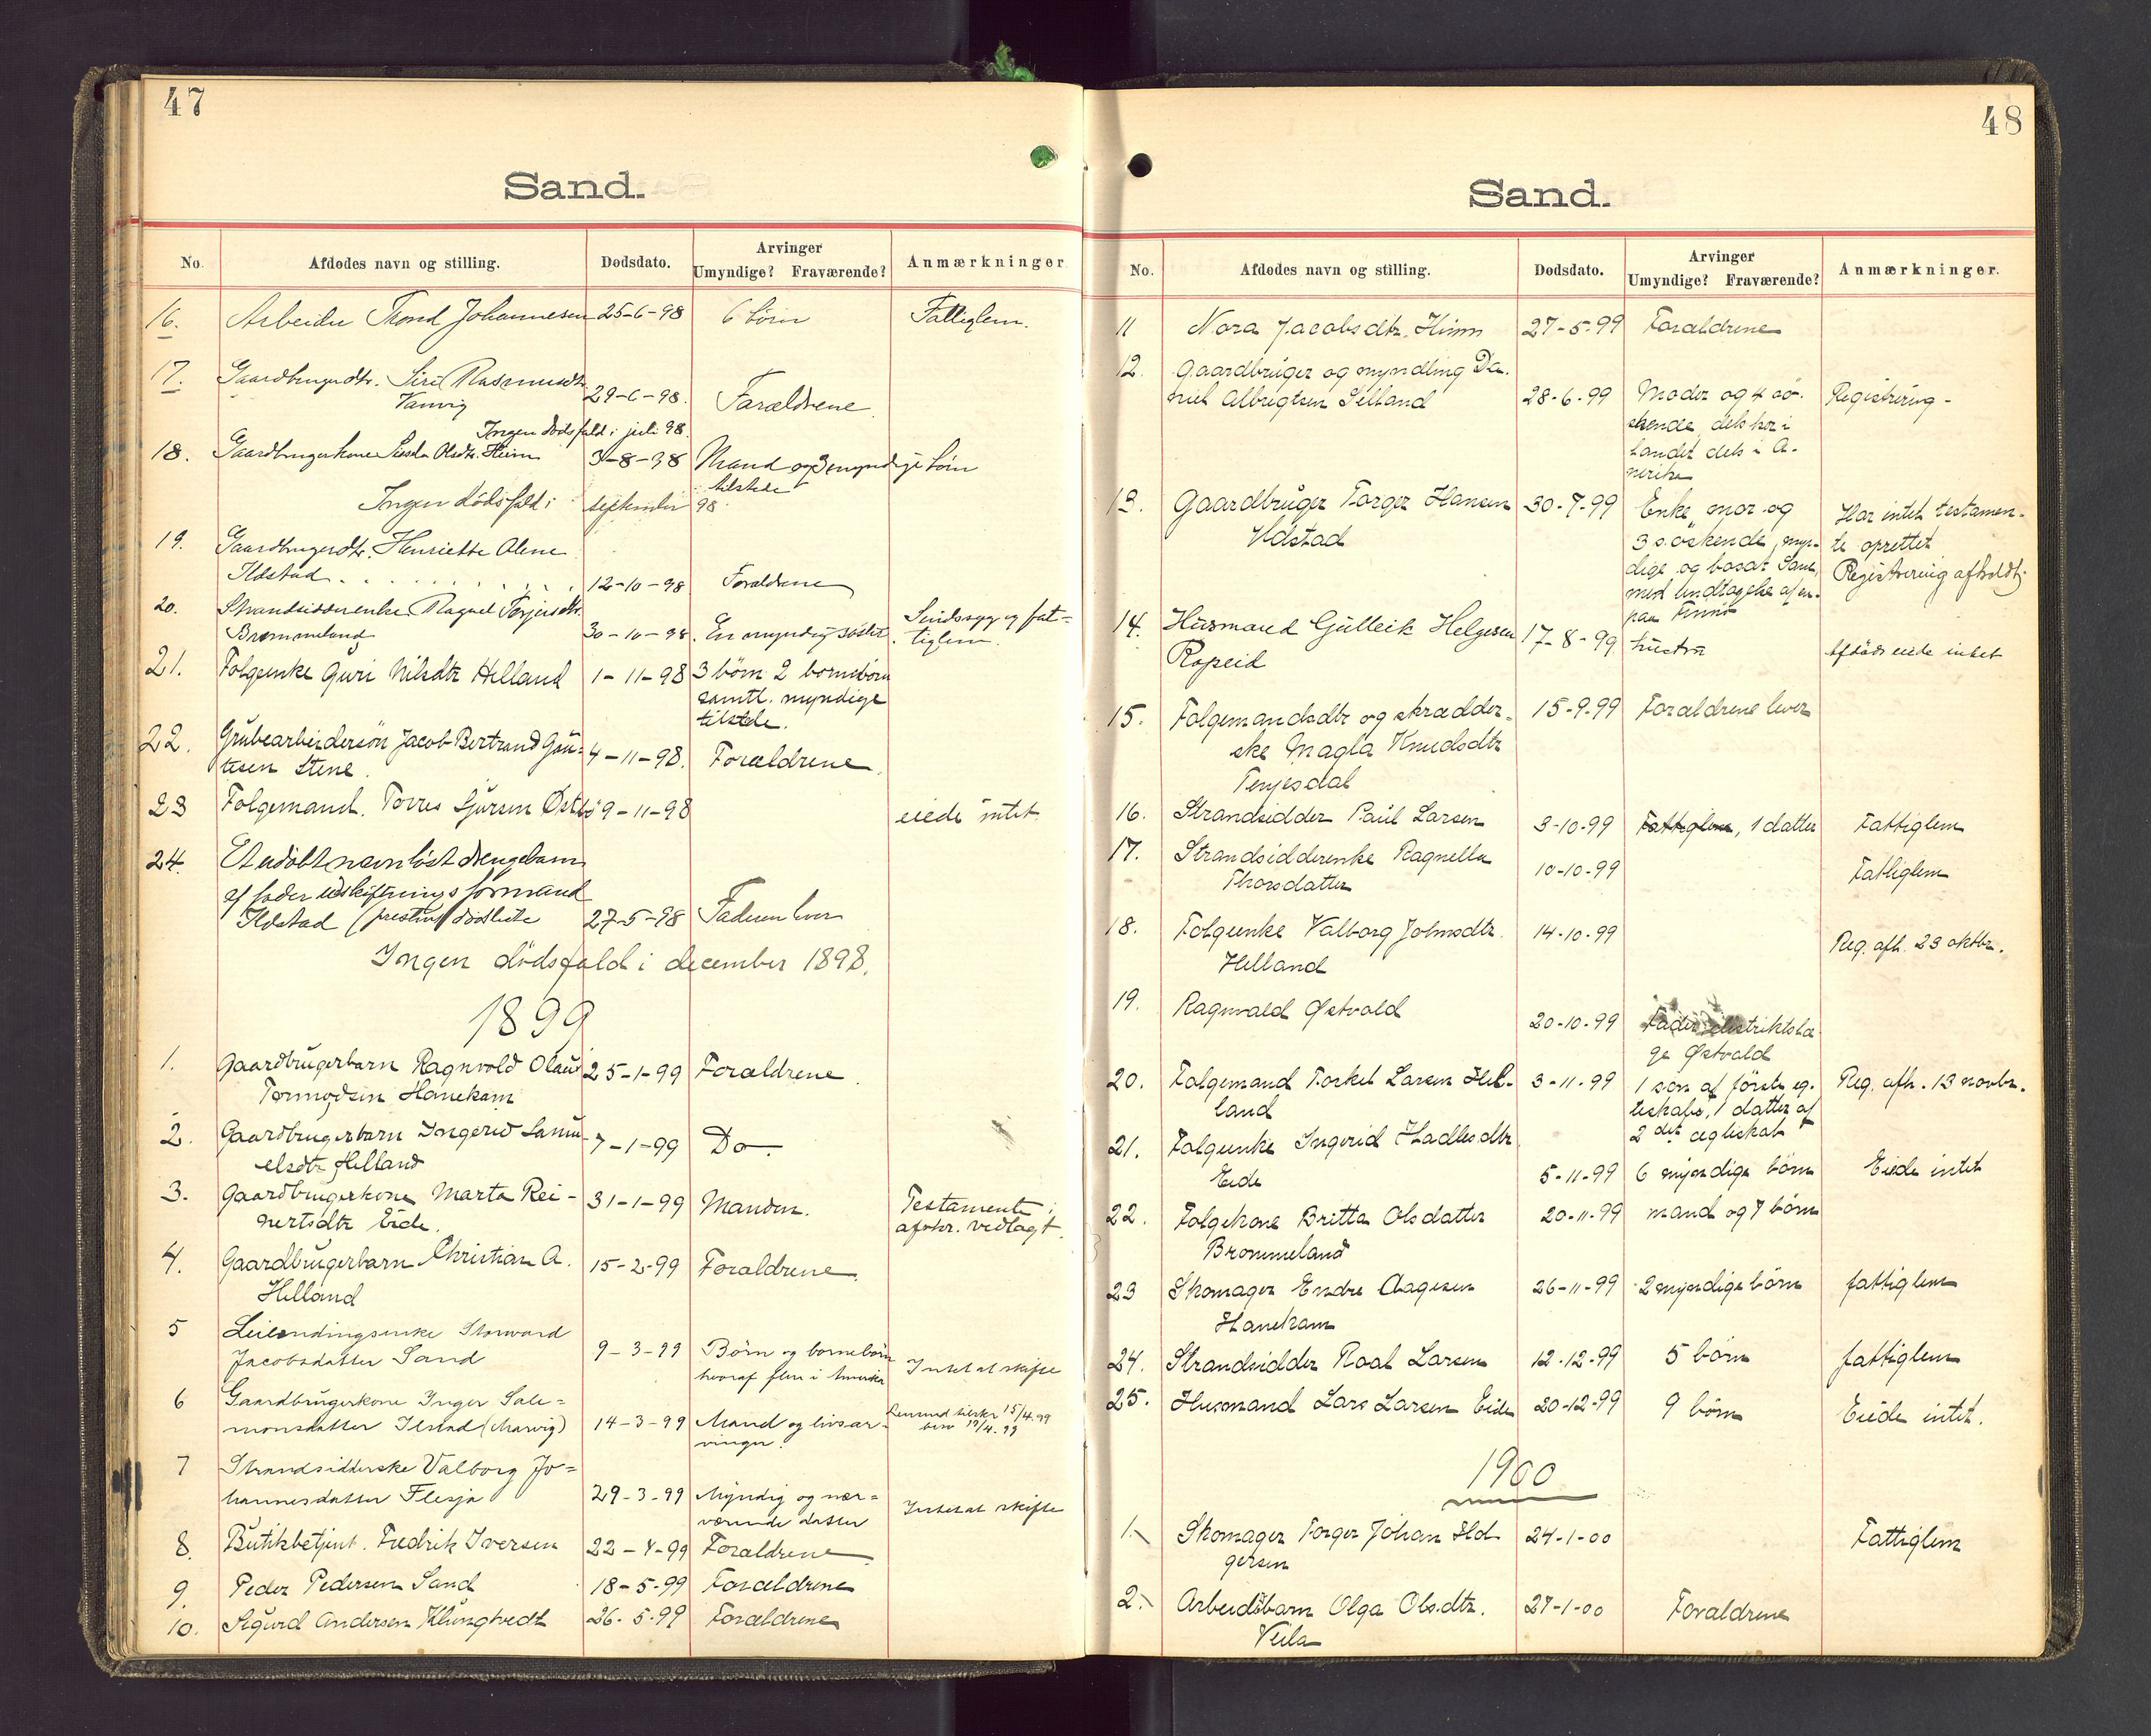 47
Sand.
No. Afdødes navn og stilling. Dødsdato. Arvinger Umyndige? Fraværende? Anmærkninger
16. Arbeider Trond Johannesen 25-6-98 6 börn Fattiglem.
17. Gaardbrugerdtr. Siri Rasmusdtr.
Vanvig 29-6-98. Forældrene.
Ingen dødsfald i juli 98.
18. Gaardbrugerkone Olsdtr. Heim 3-8-98 Mand og 3 myndige börn
tilstede
Ingen dödsfald i september 98.
19. Gaardbrugerdtr. Henriette Olene
Ildstad 12-10-98 Forældrene
20. Strandsidderenke Ragnel Torjersdtr.
Brommeland 30-10-98. En myndig söster. Sindssyg og fat-
tiglem.
21. Folgeenke Guri Nilsdtr Helland 1-11-98 3 börn 2 börnebörn
samtl. myndige
tilstede.
22. Grubearbeidersön Jacob Bertrand Gau-
tesen Stene. 4-11-98. Forældrene.
23 Folgemand. Torres Sjursen Østbø 9-11-98 eiede intet.
24. Et udöbt navnløst drengebarn
af fader udskiftningsformand
Ildstad 27-5-98 Faderen lever
Ingen dödsfald i december 1898.
1899
1. Gaardbrugerbarn Ragnvold Olaus
Tormodsen Hanekam 25-1-99 Forældrene.
2. Gaardbrugerbarn Ingerid Samu-
elsdtr Helland 7-1-99 Do.
3. Gaardbrugerkone Marta Rei-
nertsdtr Eide. 31-1-99 Manden. Testamente i
afskr. vedlagt.
4. Gaardbrugerbarn Christian A.
Helland 15-2-99 Forældrene.
5 Leilendingsenke Storward
Jacobsdatter Sand 9-3-99 Börn og börnebörn
hvoraf flere i Amerika Intet at skifte
6 Gaardbrugerkone Inger Sale=
monsdatter Ilstad (Marvig) 14-3-99 Mand og livsar-
vinger. 15/4.99
19/4.99
7 Strandsidderske Valborg Jo=
hannesdatter Flesja 29-3-99 Myndig og nær=
værende datter Intet at skifte
8. Butikbetjent. Fredrik Iversen 22-4-99 Forældrene.
9. Peder Pedersen Sand 18-5-99 Forældrene
10. Sigurd Andersen Klungtvedt 26-5-99 Forældrene
48
Sand.
No. Afdødes navn og stilling. Dødsdato. Arvinger Umyndige? Fraværende? Anmærkninger.
11 Nora Jacobsdtr. Hiim 27-5-99 Forældrene
12. Gaardbruger og myndling Da-
niel Albrigtsen Helland 28-6-99 Moder og 4 sö-
skende, dels her i
landet dels i A-
merika Registrering -
13. Gaardbruger Torger Hansen
Ildstad 30-7-99 Enke, mor og
3 söskende, myn-
dige og bosat Sand,
med undtagelse af en
paa Finnö Har intet testamen-
te oprettet
Registrering afholdt.
14. Husmand Gulleik Helgesen
Ropeid 17-8-99 hustru Afdöde eiede intet
15. Folgemandsdtr og skrædder-
ske Magla Knudsdtr
Tenjesdal 15-9-99 Forældrene lever
16. Strandsidder Paul Larsen 3-10-99 Fattiglem, 1 datter Fattiglem
17. Strandsidderenke Ragnella
Thorsdatter 10-10-99 Fattiglem
18. Folgeenke Valborg Johnsdtr.
Helland 14-10-99 Reg. afh. 23 oktbr.
19. Ragnvald Østvold 20-10-99 Fader distriktslæ
ge Østvold
20. Folgemand Torkel Larsen Hel-
land 3-11-99 1 sön af förste eg-
teskab, 1 datter af
2det ægteskab Reg. afh. 13 novbr.
21. Folgeenke Ingerid Hadlesdtr
Eide 5-11-99 6 myndige börn Eiede intet
22. Folgekone Britta Olsdatter
Brommeland 20-11-99 mand og 7 börn
23 Skomager Endre Aagesen
Hanekam 26-11-99 2 myndige börn fattiglem
24. Strandsidder Roal Larsen 12-12-99 5 börn fattiglem
25. Husmand Lars Larsen Eide 20-12-99 9 börn Eiede intet.
1900
1. Skomager Torger Johan Hel-
gersen 24-1-00 Fattiglem
2. Arbeidsbarn Olga Olsdtr.
Veila 27-1-00 Forældrene